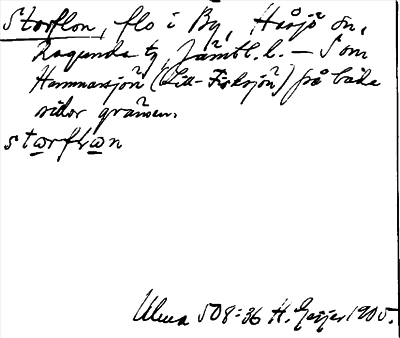 Storflon, flo i By, Håsjö sn,
Ragunda tg, Jämtl. l. – Som
Hammarsjön (Lill-Fisksjön) på båda
sidor gränsen.
storflon
Ulma 508:36 H. Geijer 1905.